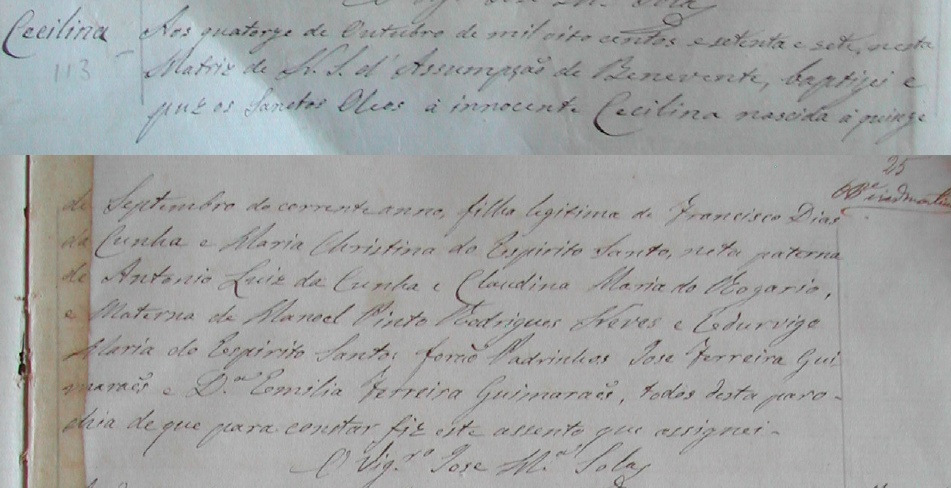 O Vig.º José M.ª Sola
Cecilina
113
Aos quatorze de Outubro de mil oito centos e setenta e sete, nesta
Matriz de N. S. d'Assumpção de Benevente, baptizei e
puz os Sanctos Oleos á innocente Cecilina nascida á quinze
25
de Septembro do corrente anno, filha legitima de Francisco Dias
da Cunha e Maria Christina do Espirito Santo, neta paterna
de Antonio Luiz da Cunha e Claudina Maria do Rozario,
e Materna de Manoel Pinto Rodrigues Neves e Edurvige
Maria do Espirito Santo: forão Padrinhos José Ferreira Gui
marães e D.ª Emilia Ferreira Guimarães, todos desta paro-
chia de que para constar fiz este assento que assignei.
O Vig.rº José M.ª Sola